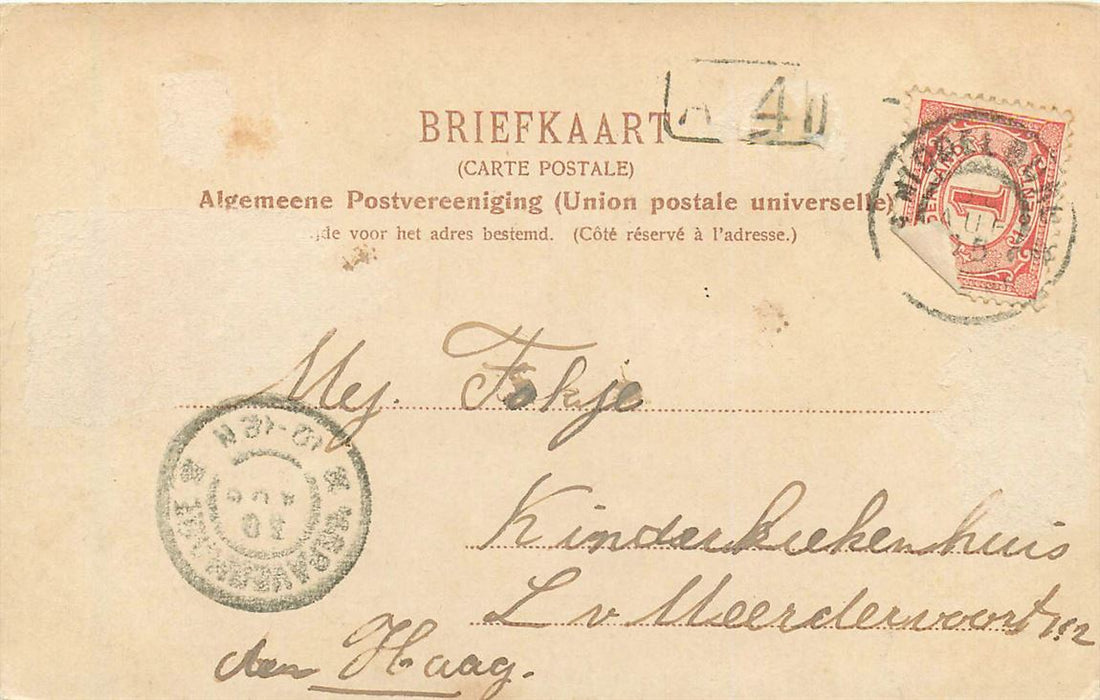 4
BRIEFKAART
(CARTE POSTALE)
Algemeene Postvereeniging (Union postale universelle)
de voor het adres bestemd. (Côté réservé à l'adresse.)
1
Mej. Fokje
Kinderziekenhuis
L v Meerdervoort
den Haag.
10-12 N
AUG